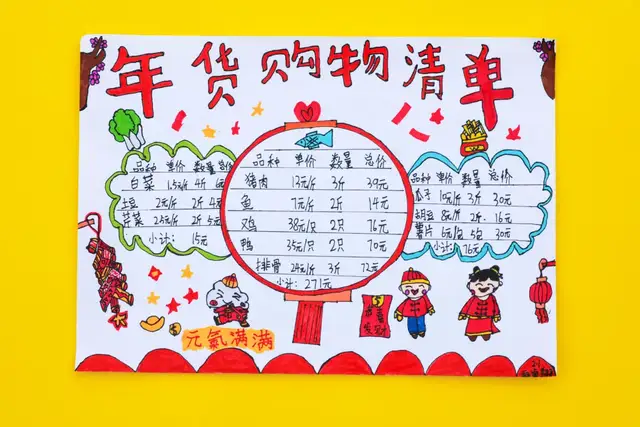 年货购物清单
品种 单价 数量 总价
白菜 1.5元/斤 4斤 6元
土豆 2元/斤 2斤 4元
芹菜 2.5元/斤 2斤 5元
小计: 15元
品种 单价 数量 总价
猪肉 13元/斤 3斤 39元
鱼 7元/斤 2斤 14元
鸡 38元/只 2只 76元
鸭 35元/只 2只 70元
排骨 24元/斤 3斤 72元
小计: 271元
品种 单价 数量 总价
瓜子 10元/斤 3斤 30元
胡豆 8元/斤 2斤 16元
薯片 6元/包 5包 30元
小计: 76元
恭喜发财
元氣满满